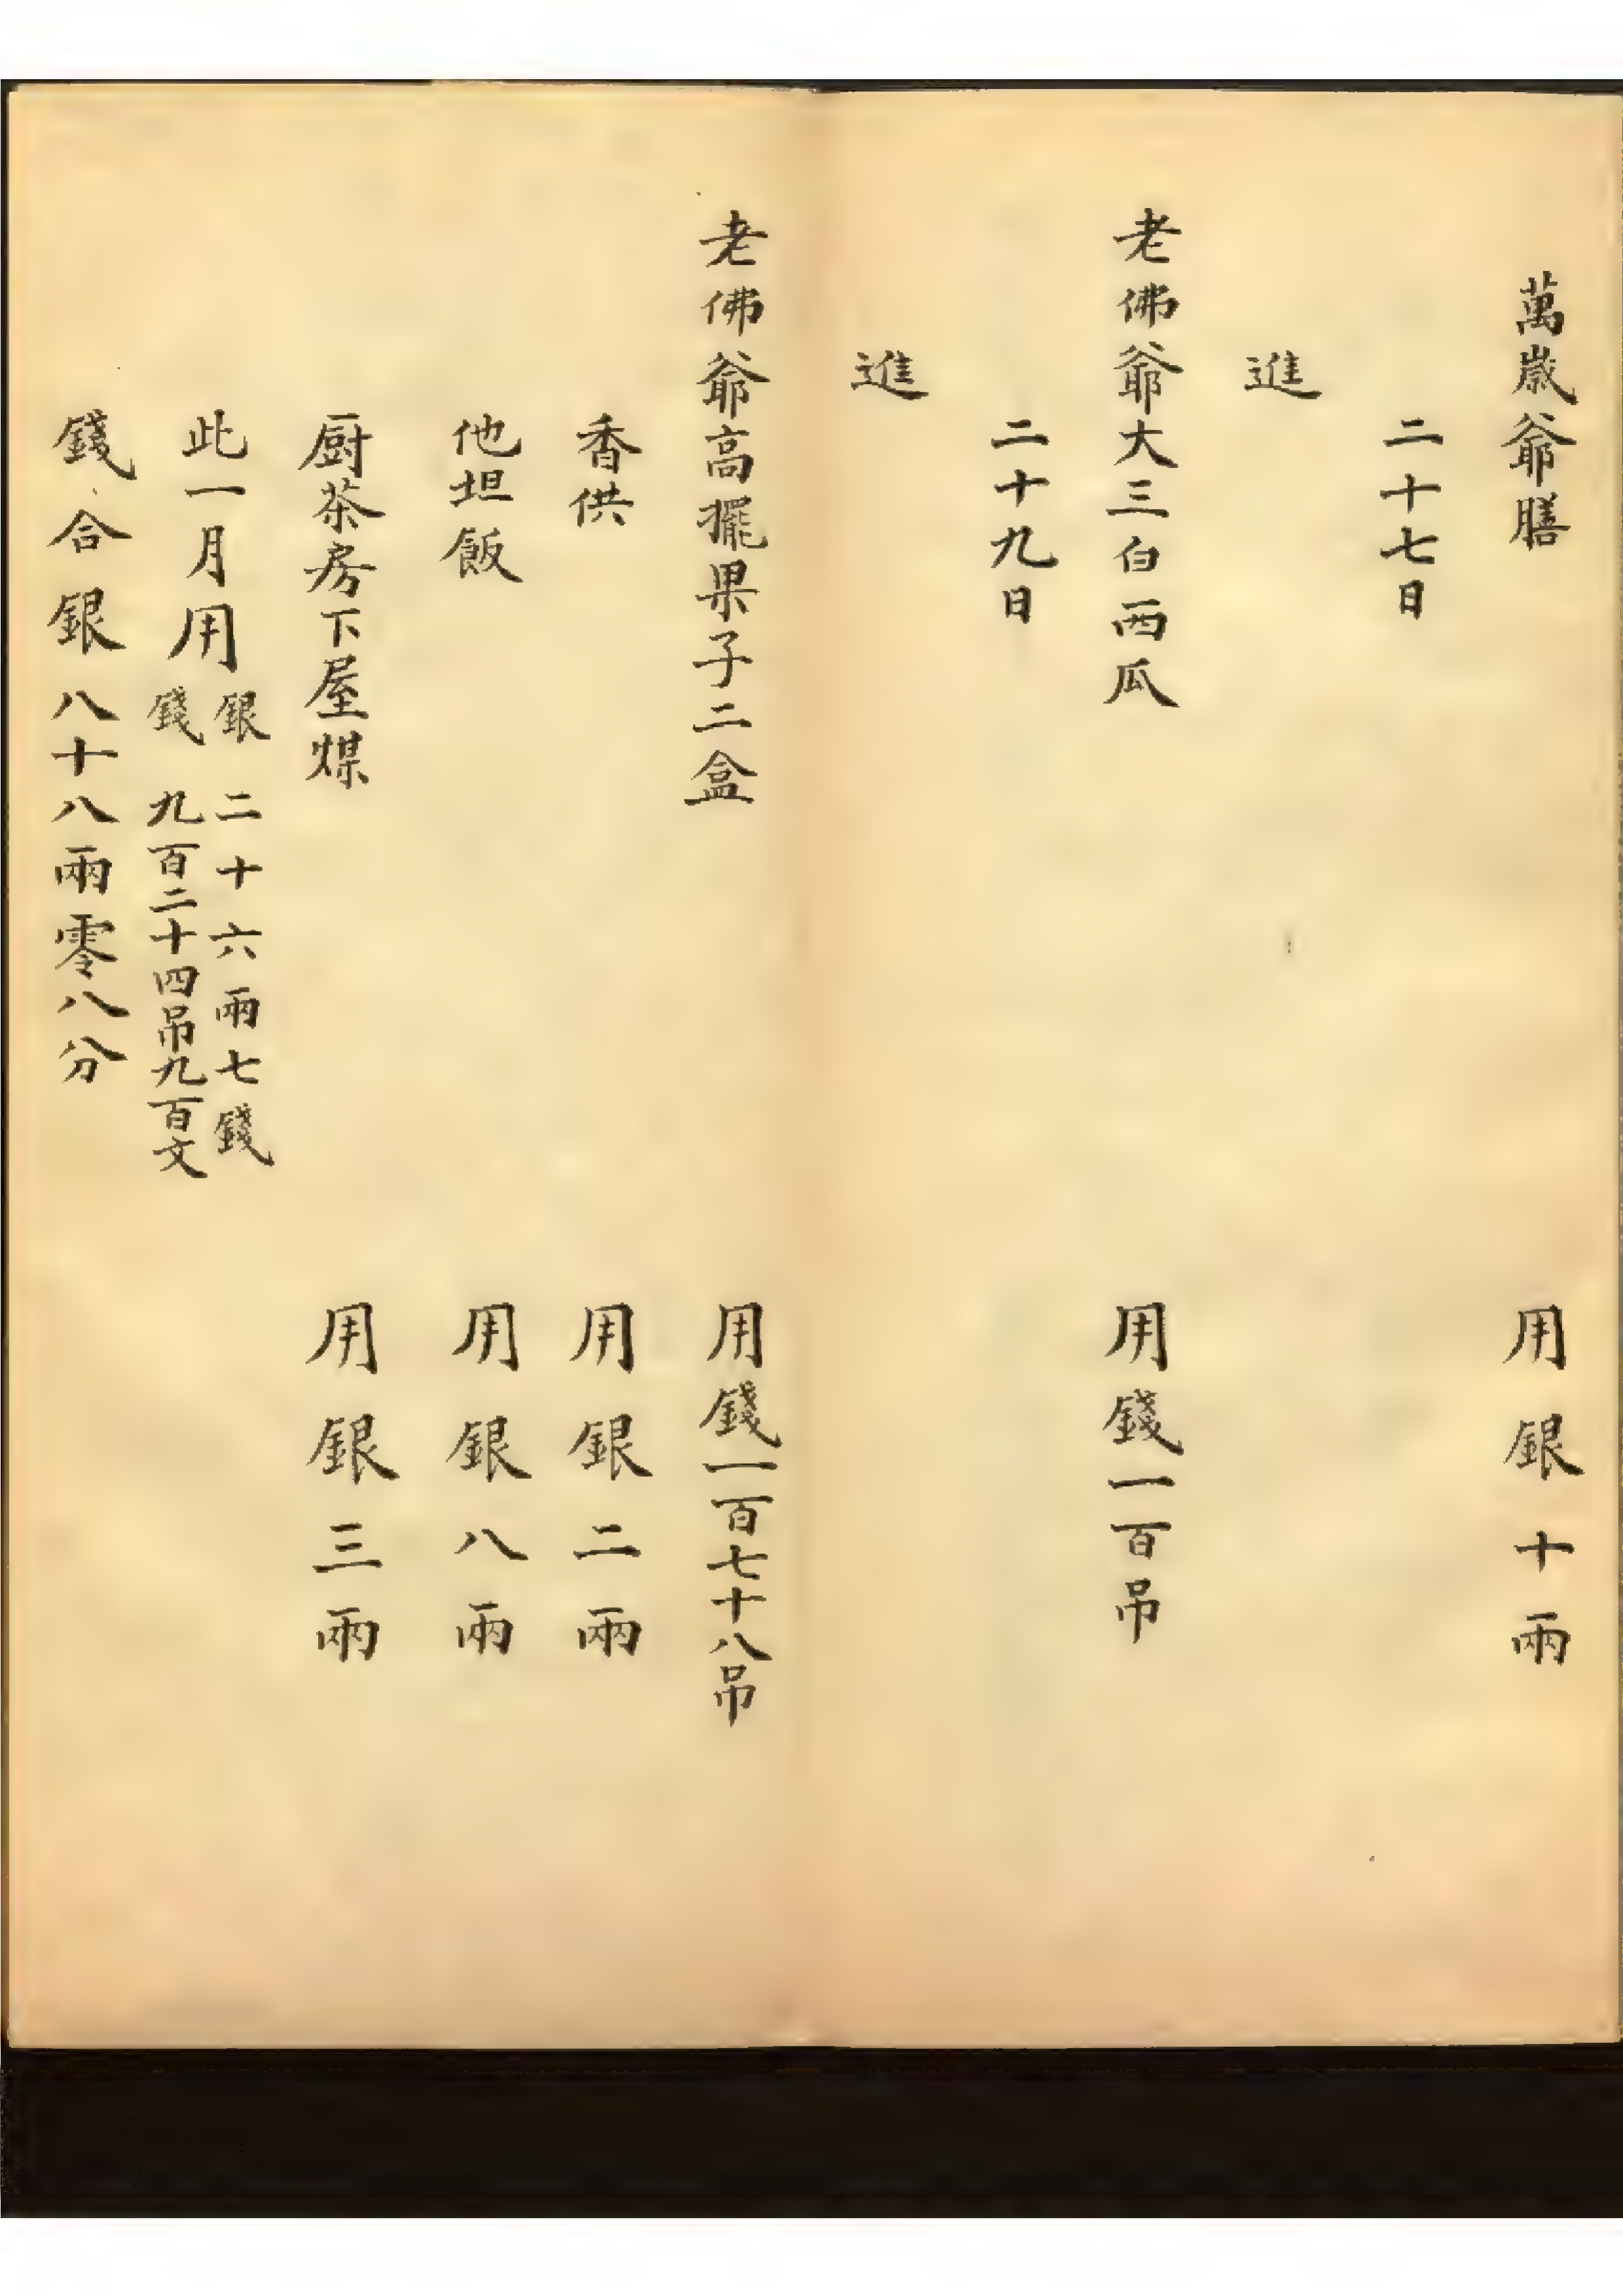 萬歲爺膳　用銀十兩
二十七日
進
老佛爺大三白西瓜　用錢一百吊
二十九日
進
老佛爺高擺果子二盒　用錢一百七十八吊
香供　用銀二兩
他坦飯　用銀八兩
厨茶房下屋煤　用銀三兩
此一月用
銀二十六兩七錢
錢九百二十四吊九百文
錢合銀八十八兩零八分